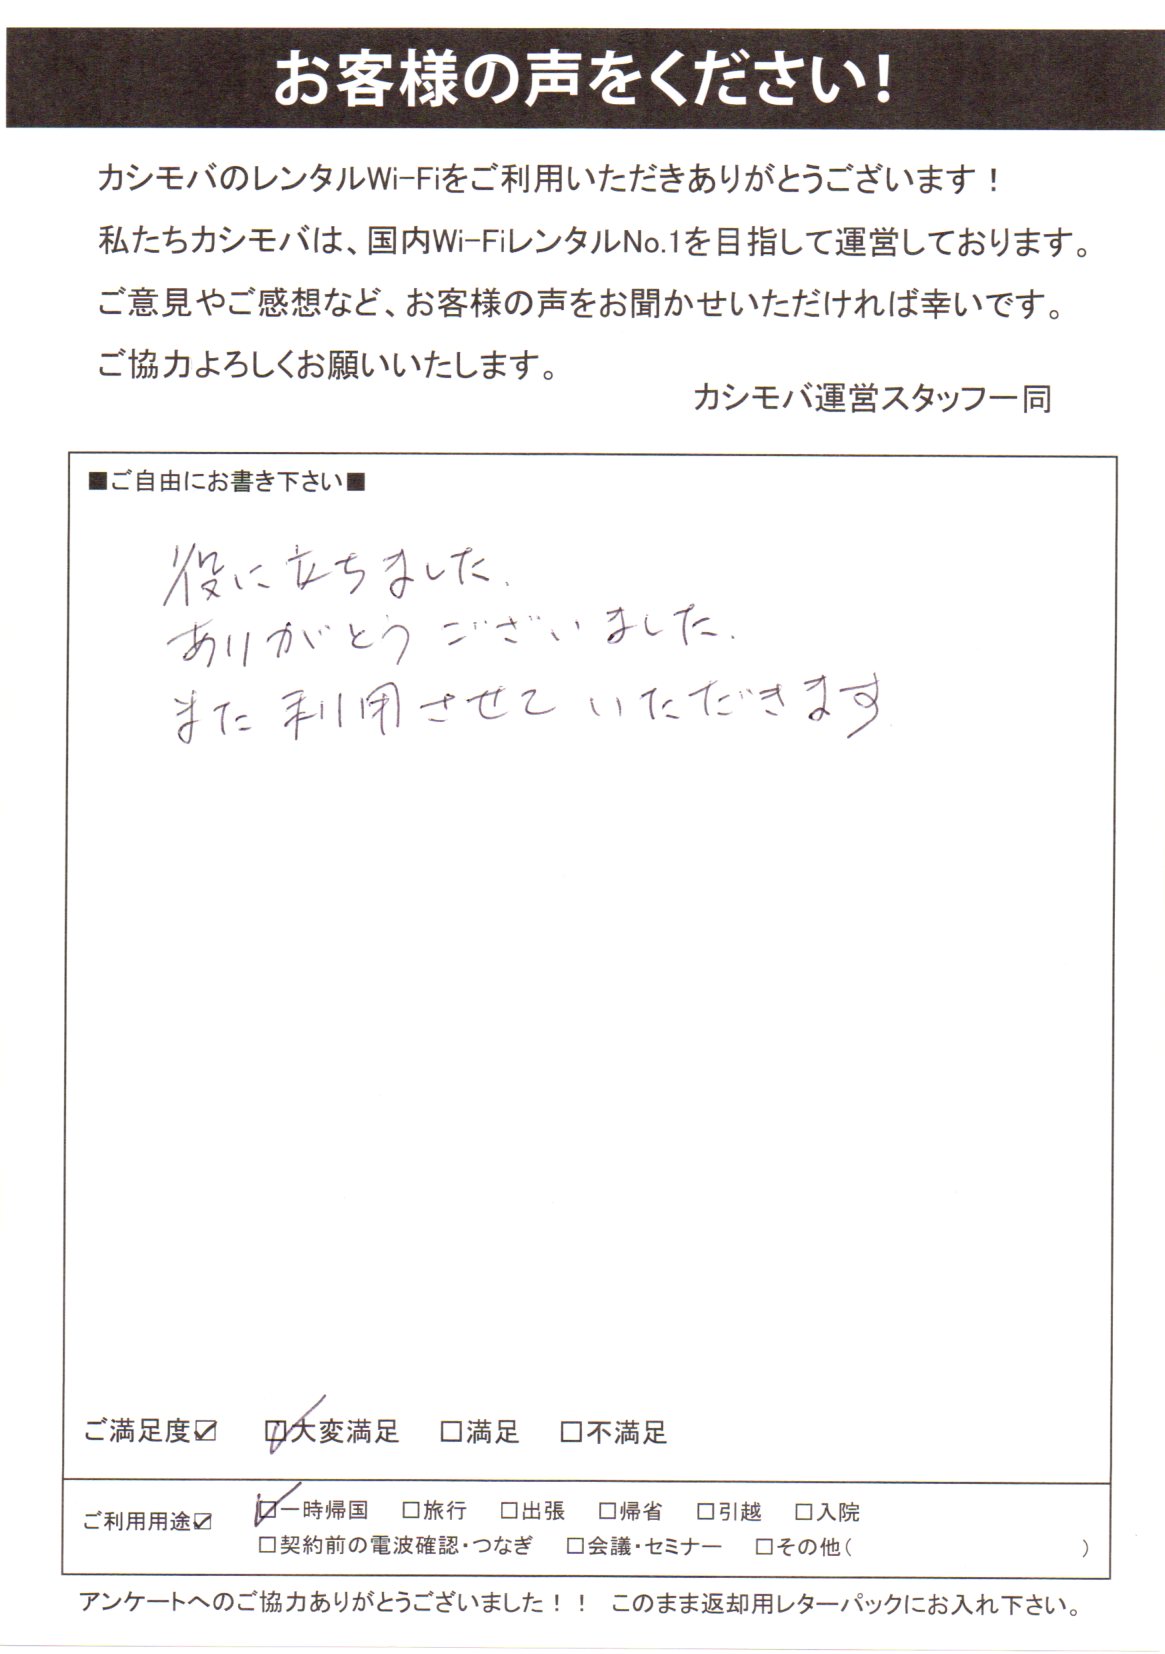 お客様の声をください！
カシモバのレンタルWi-Fiをご利用いただきありがとうございます！
私たちカシモバは、国内Wi-FiレンタルNo.1を目指して運営しております。
ご意見やご感想など、お客様の声をお聞かせいただければ幸いです。
ご協力よろしくお願いいたします。
カシモバ運営スタッフ一同
■ご自由にお書き下さい■
役に立ちました.
ありがとうございました.
また利用させていただきます
ご満足度☑ ☑大変満足 □満足 □不満足
ご利用用途☑ ☑一時帰国 □旅行 □出張 □帰省 □引越 □入院
□契約前の電波確認・つなぎ □会議・セミナー □その他（ ）
アンケートへのご協力ありがとうございました！！ このまま返却用レターパックにお入れ下さい。